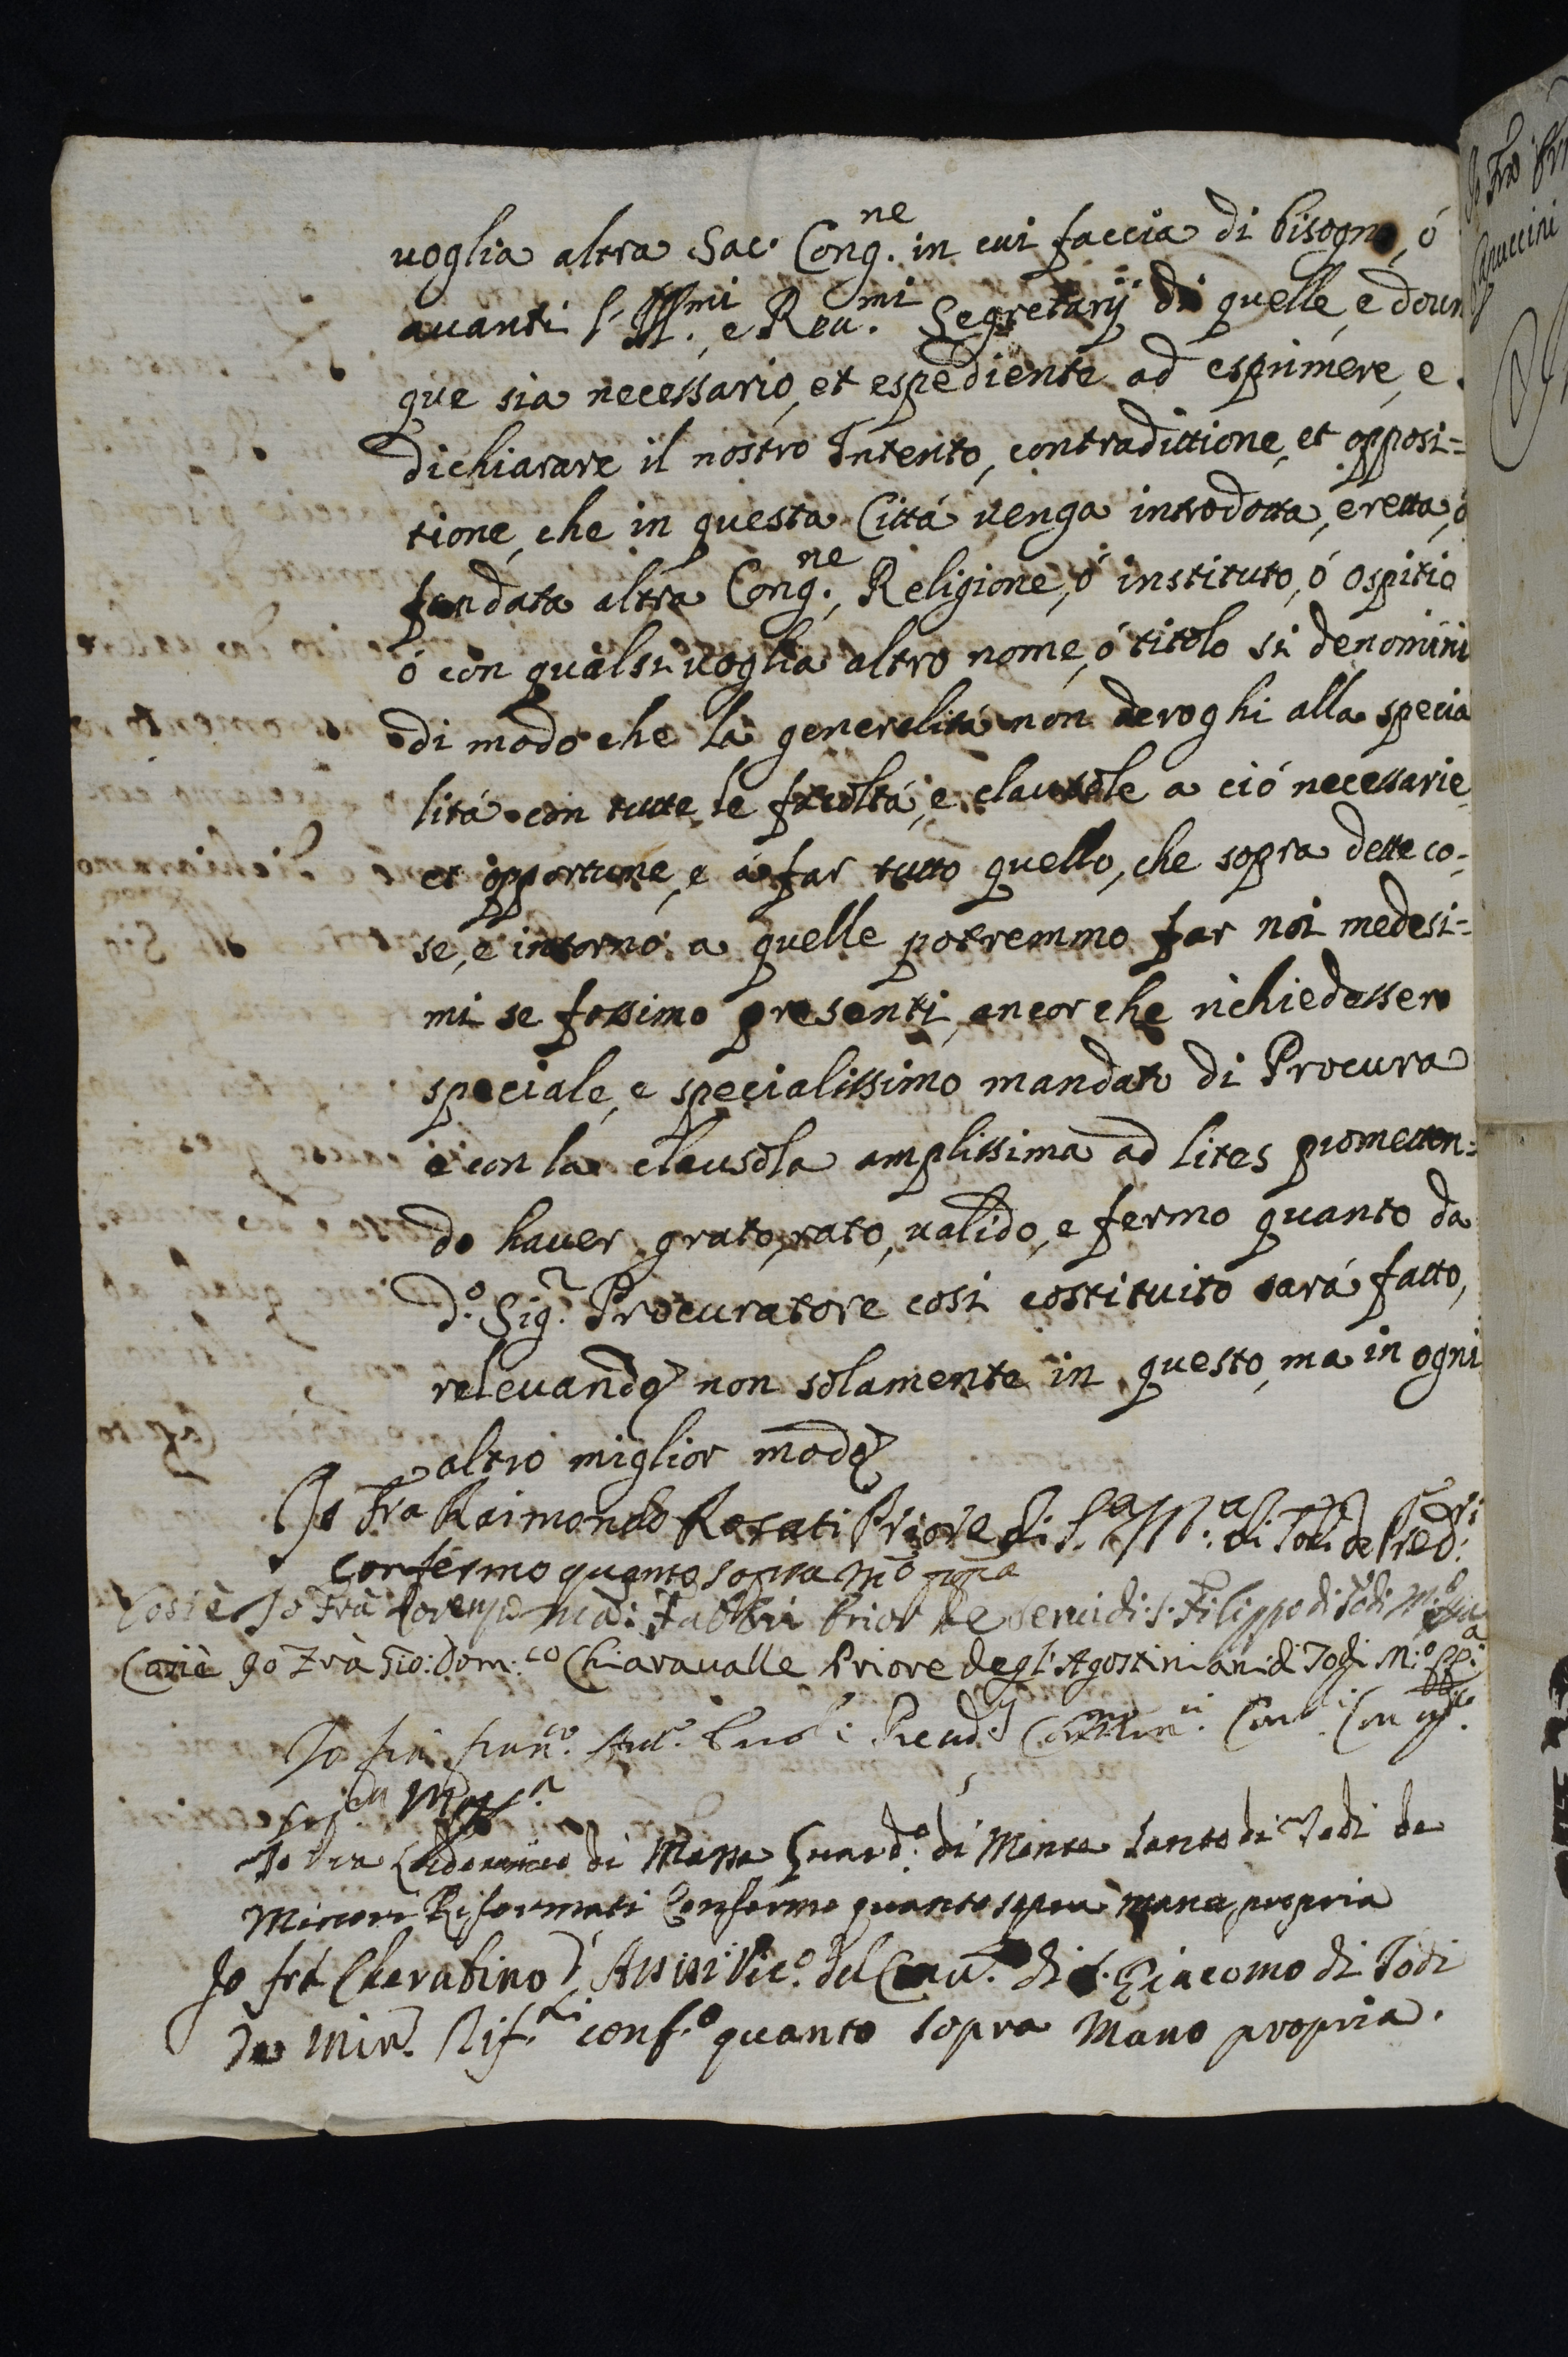 voglia altra Sac. Cong.ne in cui faccia di bisogno, ó
avanti l'Ill.mi, e Rev.mi Segretarij di quelle, e doun
que sia necessario, et espediente ad esprimere, e
dichiarare il nostro Intento, contradittione, et opposi=
tione, che in questa Cittá venga introdotta, eretta, ó
fondata altra Cong.ne, Religione, ó instituto, ó Ospitio
ó con qualsivoglia altro nome, ó titolo si denomini
di modo che la generalitá non deroghi alla specia
litá con tutte le facoltá, e clausole a ció necessarie
et opportune, e á far tutto quello, che sopra dette co=
se, e intorno a quelle potremmo far noi medesi=
mi se fossimo presenti, ancor che richiedessero
speciale, e specialissimo mandato di Procura
e con la clausola amplissima ad lites prometten=
do haver grato, rato, valido, e fermo quanto da
d.o Sig.r Procuratore cosi costituito sará fatto,
relevando non solamente in questo, ma in ogni
altro miglior modo
Io Fra Raimondo Rosati Priore di S.a M.a di Todi de Pred.ri
confermo quanto sopra m.o pp.a
Cosi è Io Frà Lorenzo Fabbri Prior de Servi di S. Filippo di Todi m.o pp.a
Cosi è Io Frà Gio: Dom.co Chiaravalle Priore degl'Agostiniani di Todi M.o pp.a
Io fra
Io fra di Massa Guard.o di Monte Santo di Todi de
Minori Riformati Confermo quanto sopra mano propria
Io frá Cherubino d'Assisi Vic.o del Conv.o di S. Giacomo di Todi
De Min.i Rif.ti conf.o quanto sopra Mano propria.
Io Fra
Capuccini